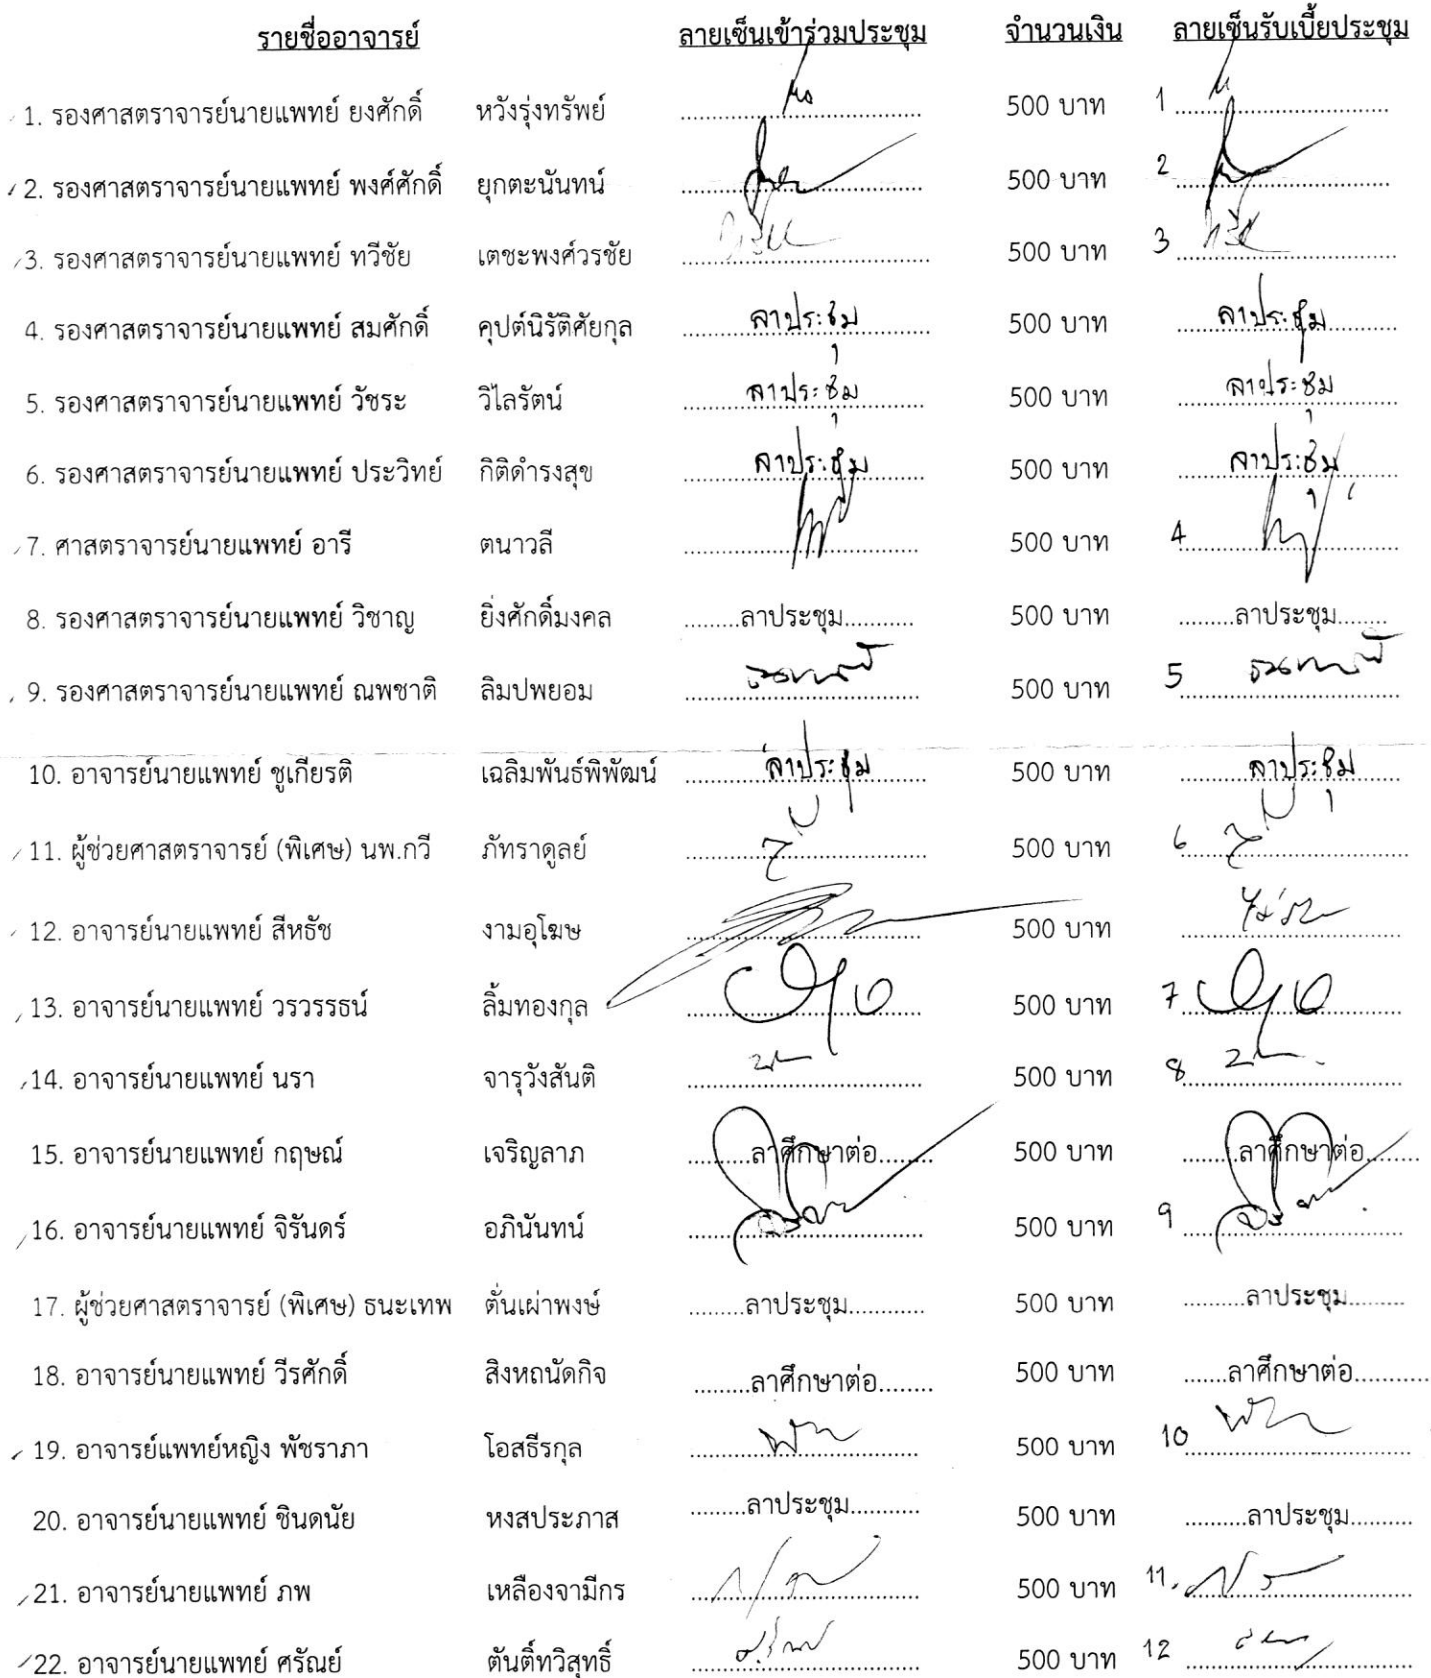 รายชื่ออาจารย์ ลายเซ็นเข้าร่วมประชุม จำนวนเงิน ลายเซ็นรับเบี้ยประชุม
1. รองศาสตราจารย์นายแพทย์ ยงศักดิ์ หวังรุ่งทรัพย์ 500 บาท 1
2. รองศาสตราจารย์นายแพทย์ พงศ์ศักดิ์ ยุกตะนันทน์ 500 บาท 2
3. รองศาสตราจารย์นายแพทย์ ทวีชัย เตชะพงศ์วรชัย 500 บาท 3
4. รองศาสตราจารย์นายแพทย์ สมศักดิ์ คุปต์นิรัติศัยกุล ลาประชุม 500 บาท ลาประชุม
5. รองศาสตราจารย์นายแพทย์ วัชระ วิไลรัตน์ ลาประชุม 500 บาท ลาประชุม
6. รองศาสตราจารย์นายแพทย์ ประวิทย์ กิติดำรงสุข ลาประชุม 500 บาท ลาประชุม
7. ศาสตราจารย์นายแพทย์ อารี ตนาวลี 500 บาท 4
8. รองศาสตราจารย์นายแพทย์ วิชาญ ยิ่งศักดิ์มงคล ลาประชุม 500 บาท ลาประชุม
9. รองศาสตราจารย์นายแพทย์ ณพชาติ ลิมปพยอม 500 บาท 5
10. อาจารย์นายแพทย์ ชูเกียรติ เฉลิมพันธ์พิพัฒน์ ลาประชุม 500 บาท ลาประชุม
11. ผู้ช่วยศาสตราจารย์ (พิเศษ) นพ.กวี ภัทราดูลย์ 500 บาท 6
12. อาจารย์นายแพทย์ สีหธัช งามอุโฆษ 500 บาท
13. อาจารย์นายแพทย์ วรวรรธน์ ลิ้มทองกุล 500 บาท 7
14. อาจารย์นายแพทย์ นรา จารุวังสันติ 500 บาท 8
15. อาจารย์นายแพทย์ กฤษณ์ เจริญลาภ ลาศึกษาต่อ 500 บาท ลาศึกษาต่อ
16. อาจารย์นายแพทย์ จิรันดร์ อภินันทน์ 500 บาท 9
17. ผู้ช่วยศาสตราจารย์ (พิเศษ) ธนะเทพ ตั่นเผ่าพงษ์ ลาประชุม 500 บาท ลาประชุม
18. อาจารย์นายแพทย์ วีรศักดิ์ สิงหถนัดกิจ ลาศึกษาต่อ 500 บาท ลาศึกษาต่อ
19. อาจารย์แพทย์หญิง พัชราภา โอสธีรกุล 500 บาท 10
20. อาจารย์นายแพทย์ ชินดนัย หงสประภาส ลาประชุม 500 บาท ลาประชุม
21. อาจารย์นายแพทย์ ภพ เหลืองจามีกร 500 บาท 11.
22. อาจารย์นายแพทย์ ศรัณย์ ตันติ์ทวิสุทธิ์ 500 บาท 12